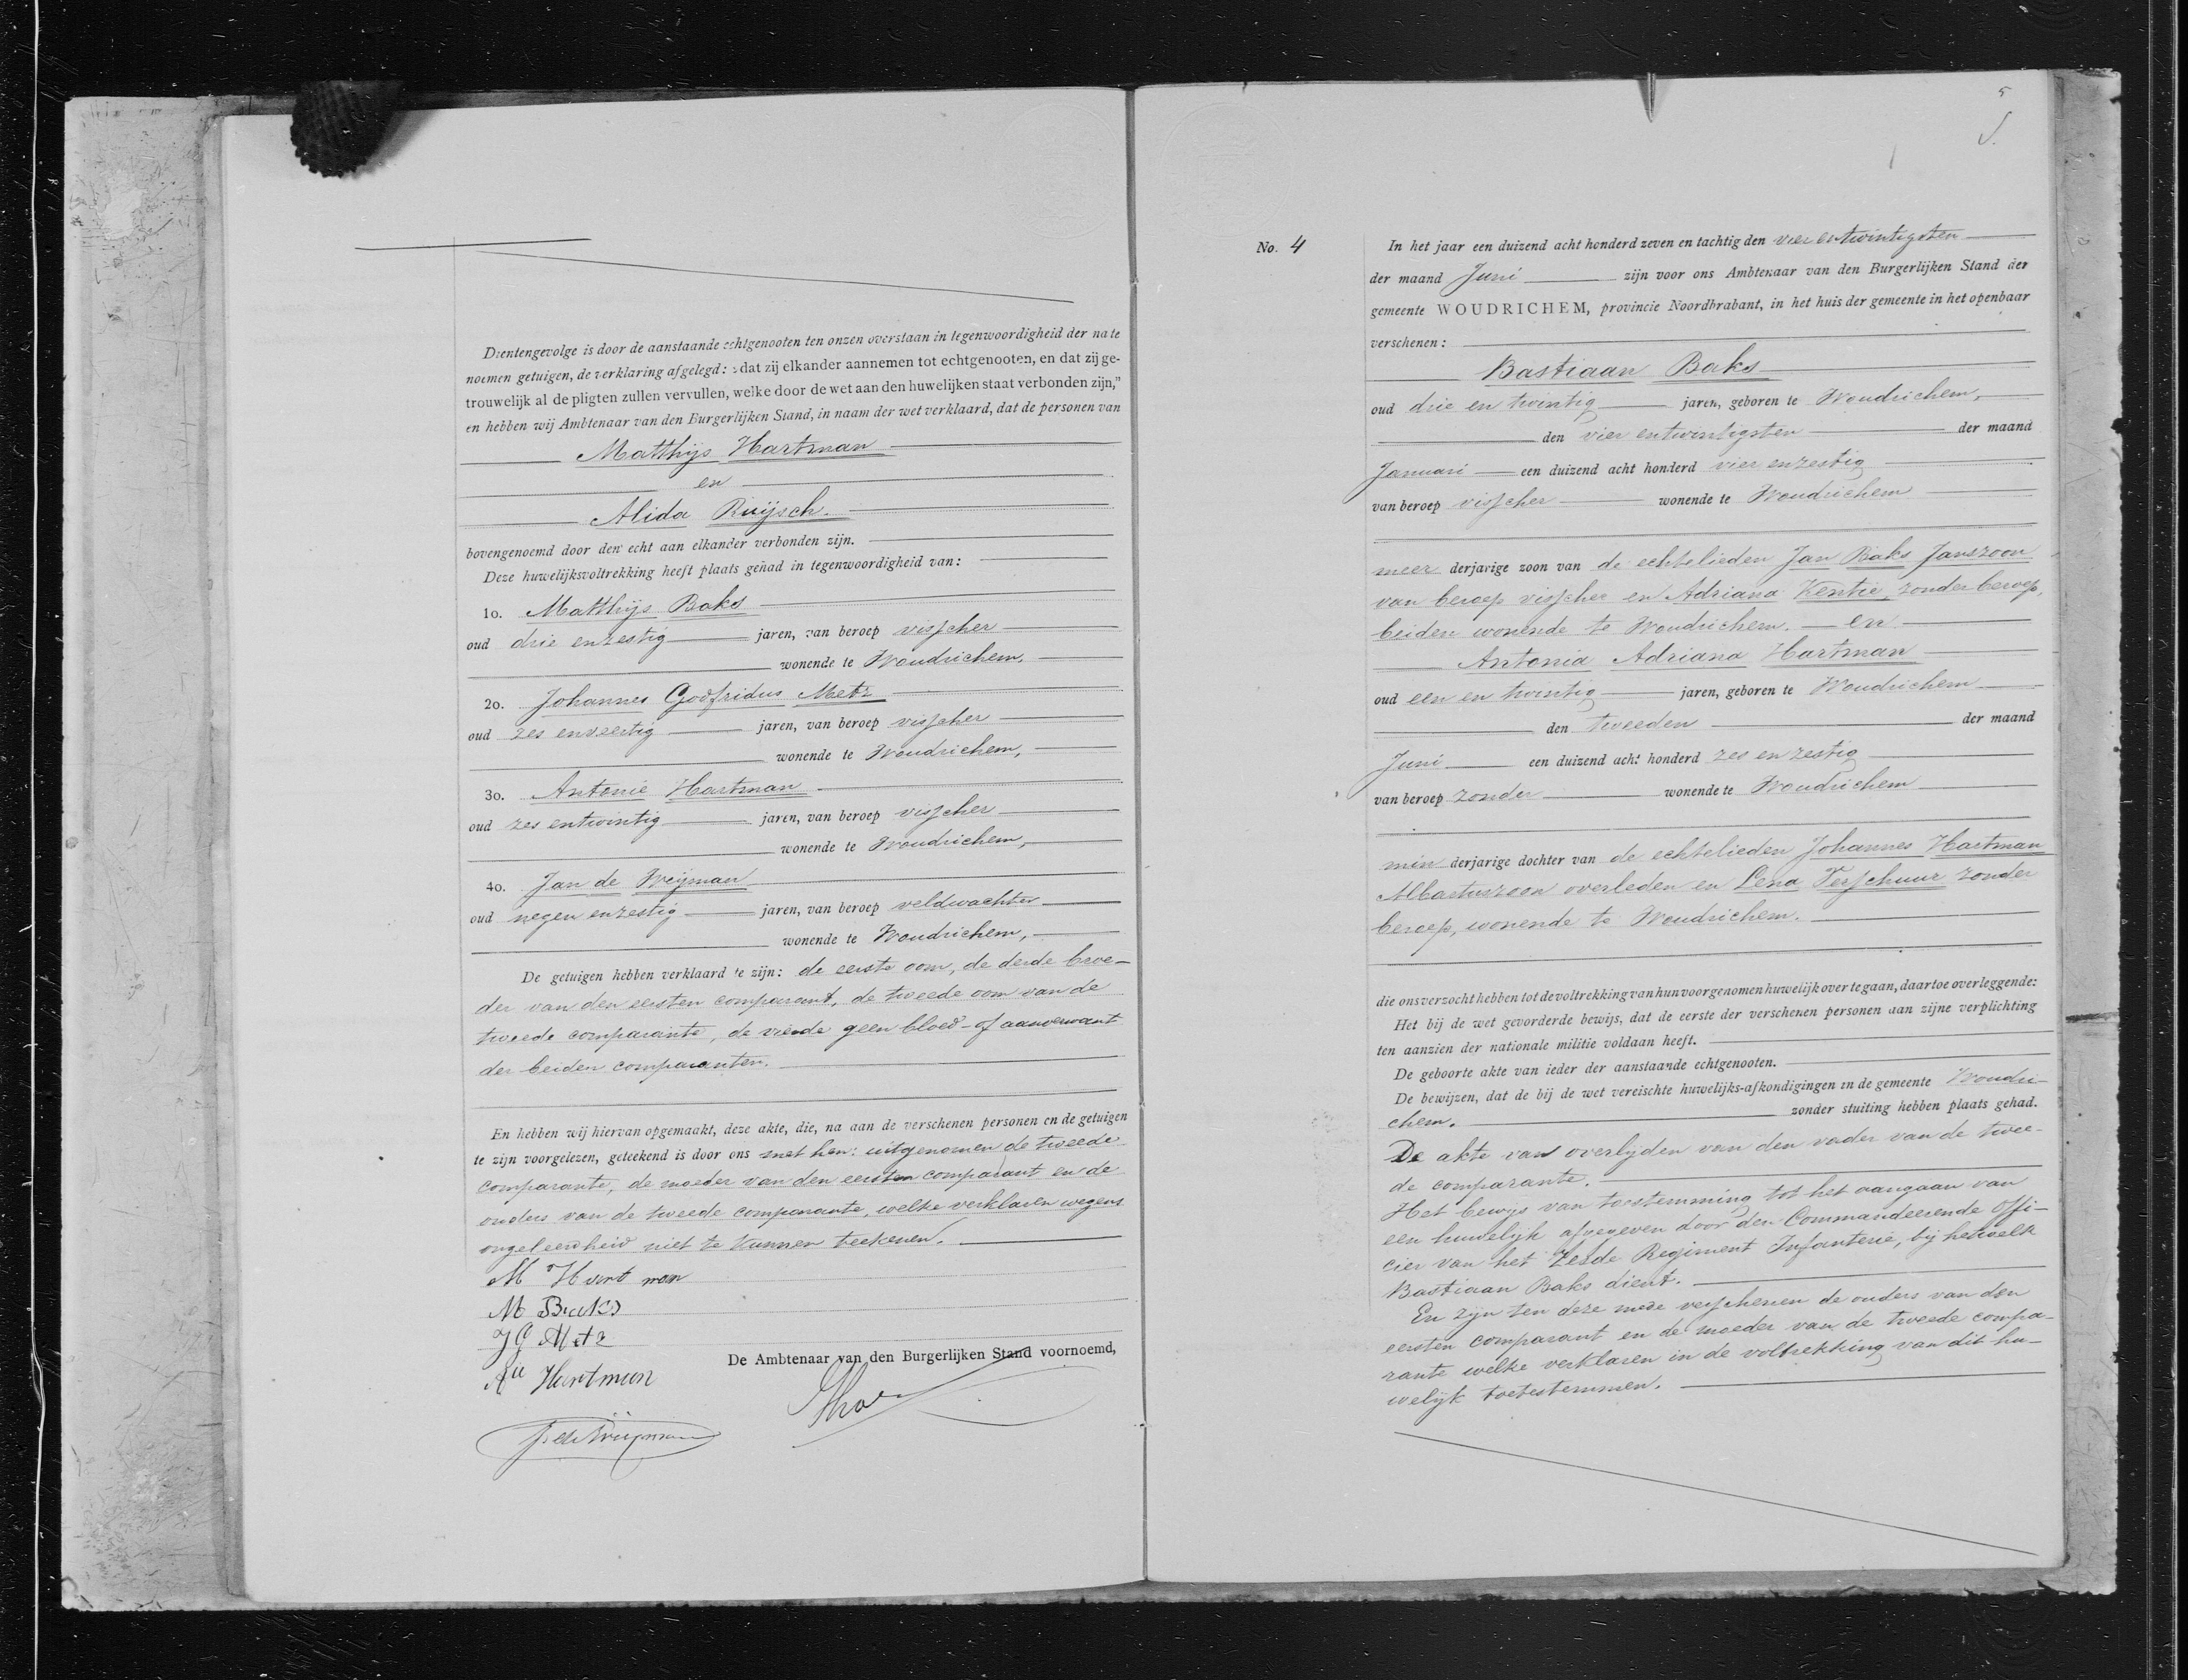 Dientengevolge is door de aanstaande echtgenooten ten onzen overstaan in tegenwoordigheid der na te
noemen getuigen, de verklaring afgelegd: „dat zij elkander aannemen tot echtgenooten, en dat zij ge-
trouwelijk al de pligten zullen vervullen, welke door de wet aan den huwelijken staat verbonden zijn,”
en hebben wij Ambtenaar van den Burgerlijken Stand, in naam der wet verklaard, dat de personen van
Matthijs Hartman
en
Alida Ruijsch.
bovengenoemd door den echt aan elkander verbonden zijn.
Deze huwelijksvoltrekking heeft plaats gehad in tegenwoordigheid van:
1o. Matthijs Baks
oud drie en zestig jaren, van beroep visscher
wonende te Woudrichem,
2o. Johannes Godfridus Metz
oud zes en veertig jaren, van beroep visscher
wonende te Woudrichem,
3o. Antonie Hartman
oud zes en twintig jaren, van beroep visscher
wonende te Woudrichem,
4o. Jan de Weijman
oud negen en zestig jaren, van beroep veldwachter
wonende te Woudrichem,
De getuigen hebben verklaard te zijn: de eerste oom, de derde broe-
der van den eersten comparant, de tweede oom van de
tweede comparante, de vierde geen bloed- of aanverwant
der beiden comparanten.
En hebben wij hiervan opgemaakt, deze akte, die, na aan de verschenen personen en de getuigen
te zijn voorgelezen, geteekend is door ons met hen: uitgenomen de tweede
comparante, de moeder van den eersten comparant en de
ouders van de tweede comparante, welke verklaren wegens
ongeleerdheid niet te kunnen teekenen.
M Hartman
M Baks
J G Metz
Aie Hartman
De Ambtenaar van den Burgerlijken Stand voornoemd,
J de Weijman
5
No. 4
In het jaar een duizend acht honderd zeven en tachtig den vier en twintigsten
der maand Juni zijn voor ons Ambtenaar van den Burgerlijken Stand der
gemeente WOUDRICHEM, provincie Noordbrabant, in het huis der gemeente in het openbaar
verschenen:
Bastiaan Baks
oud drie en twintig jaren, geboren te Woudrichem,
den vier en twintigsten der maand
Januari een duizend acht honderd vier en zestig
van beroep visscher wonende te Woudrichem
meer derjarige zoon van de echtelieden Jan Baks Janszoon
van beroep visscher en Adriana Kentie, zonder beroep,
beiden wonende te Woudrichem. — en
Antonia Adriana Hartman
oud een en twintig jaren, geboren te Woudrichem
den tweeden der maand
Juni een duizend acht honderd zes en zestig
van beroep zonder wonende te Woudrichem
min derjarige dochter van de echtelieden Johannes Hartman
Albartuszoon overleden en Lena Terschuur zonder
beroep, wonende te Woudrichem.
die ons verzocht hebben tot de voltrekking van hun voorgenomen huwelijk over te gaan, daartoe overleggende:
Het bij de wet gevorderde bewijs, dat de eerste der verschenen personen aan zijne verplichting
ten aanzien der nationale militie voldaan heeft.
De geboorte akte van ieder der aanstaande echtgenooten.
De bewijzen, dat de bij de wet vereischte huwelijks-afkondigingen in de gemeente Woudri-
chem. zonder stuiting hebben plaats gehad.
De akte van overlyden van den vader van de twee-
de comparante.
Het bewys van toestemming tot het aangaan van
een huwelijk afgegeven door den Commandeerende Offi-
cier van het Zesde Regiment Infanterie, by hetwelk
Bastiaan Baks dient.
En zyn ten deze mede verschenen de ouders van den
eersten comparant en de moeder van de tweede compa-
rante welke verklaren in de voltrekking van dit hu-
welijk toetestemmen.